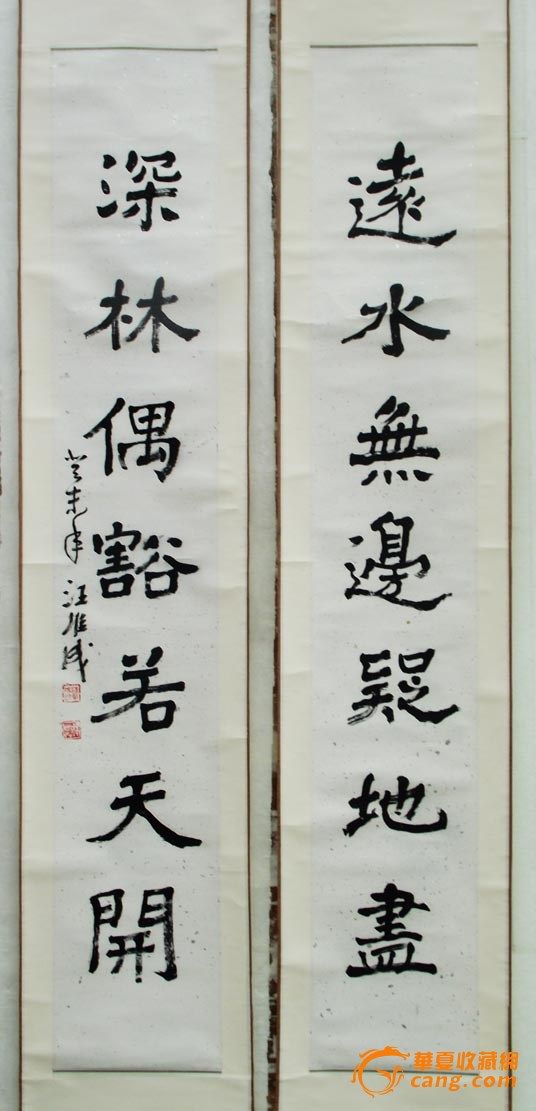 遠水無邊疑地盡
深林偶豁若天開
癸未年 汪維成
華夏收藏網
cang.com